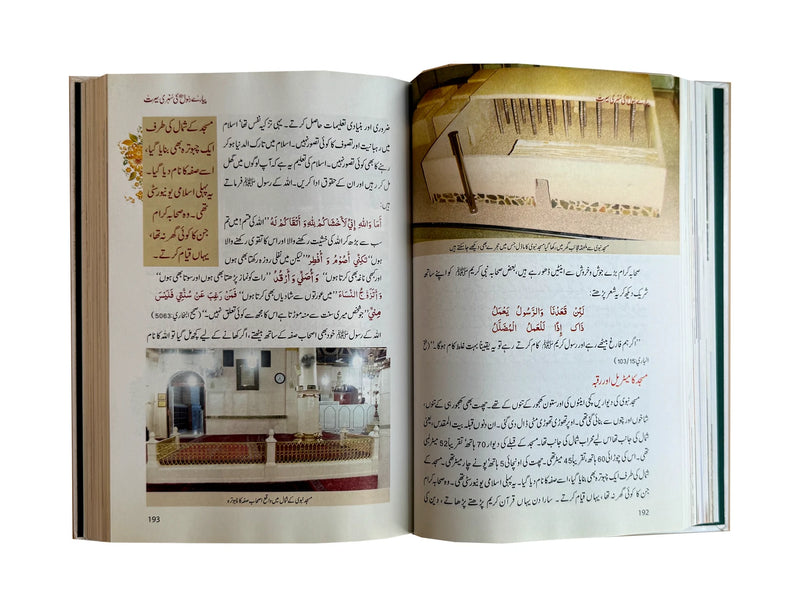 پیارے رسول ﷺ کی سنہری سیرت
مسجد نبوی سے ملحقہ عجائب گھر میں رکھا گیا مسجد نبوی کا ماڈل جس میں حجرے بھی دیکھے جاسکتے ہیں
صحابہ کرام بڑے جوش و خروش سے اینٹیں ڈھو رہے ہیں، بعض صحابہ نبی کریم ﷺ کو اپنے ساتھ
شریک دیکھ کر یہ شعر پڑھتے:
لَئِنْ قَعَدْنَا وَالرَّسُولُ يَعْمَلُ
ذَاكَ إِذًا لَلْعَمَلُ الْمُضَلَّلُ
’’اگر ہم فارغ بیٹھے رہے اور رسول کریم ﷺ کام کرتے رہے تو یہ یقیناً بہت غلط کام ہوگا۔‘‘ (فتح
الباری: 103/15)
مسجد کا میٹریل اور رقبہ
مسجد نبوی کی دیواریں کچی اینٹوں کی اور ستون کھجور کے تنوں کے تھے۔ چھت بھی کھجور ہی کے تنوں،
شاخوں اور پتوں سے بنائی گئی تھی۔ اوپر تھوڑی تھوڑی مٹی ڈال دی گئی۔ ان دنوں قبلہ بیت المقدس، یعنی
شمال کی جانب تھا اس لیے محراب شمال کی جانب تھا۔ مسجد کے قبلے کی دیوار 70 ہاتھ، تقریباً 52 میٹر تھی
تھی۔ اس کی چوڑائی 60 ہاتھ، تقریباً 45 میٹر تھی۔ چھت کی اونچائی 5 ہاتھ، پونے چار میٹر تھی۔ مسجد کے
شمال کی طرف ایک چبوترہ بھی بنایا گیا، اسے صفہ کا نام دیا گیا۔ یہ پہلی اسلامی یونیورسٹی تھی۔ وہ صحابہ کرام
جن کا کوئی گھر نہ تھا، یہاں قیام کرتے۔ سارا دن یہاں قرآن کریم پڑھتے پڑھاتے، دین کی
192
پیارے رسول ﷺ کی سنہری سیرت
مسجد کے شمال کی طرف
ایک چبوترہ بھی بنایا گیا،
اسے صفہ کا نام دیا گیا۔
یہ پہلی اسلامی یونیورسٹی
تھی۔ وہ صحابہ کرام
جن کا کوئی گھر نہ تھا،
یہاں قیام کرتے۔
ضروری اور بنیادی تعلیمات حاصل کرتے۔ یہی تزکیہ نفس تھا‘ اسلام
میں رہبانیت اور تصوف کا کوئی تصور نہیں۔ اسلام میں تارک الدنیا ہو کر
رہنے کا بھی کوئی تصور نہیں۔ اسلام کی تعلیم یہ ہے کہ آپ لوگوں میں گھل
مل کر رہیں اور ان کے حقوق ادا کریں۔ اللہ کے رسول ﷺ فرماتے
ہیں:
أَمَا وَاللهِ إِنِّي لَأَخْشَاكُمْ لِلّٰهِ وَ أَتْقَاكُمْ لَهُ ’’اللہ کی قسم! میں تم
سب سے بڑھ کر اللہ کی خشیت رکھنے والا اور اس کا تقوی رکھنے والا
ہوں‘‘ لٰكِنِّي أَصُومُ وَ أُفْطِرُ ’’لیکن میں نفلی روزہ رکھتا بھی ہوں
اور کبھی ناغہ بھی کرتا ہوں‘‘ وَ أُصَلِّي وَ أَرْقُدُ ’’رات کو نماز پڑھتا بھی ہوں اور سوتا بھی ہوں‘‘
وَ أَتَزَوَّجُ النِّسَاءَ ’’میں عورتوں سے شادیاں بھی کرتا ہوں‘‘ فَمَنْ رَغِبَ عَنْ سُنَّتِي فَلَيْسَ
مِنِّي ’’جو شخص میری سنت سے منہ موڑتا ہے اس کا مجھ سے کوئی تعلق نہیں۔‘‘ (صحیح البخاری: 5063)
اللہ کے رسول ﷺ خود بھی اصحاب صفہ کے ساتھ بیٹھتے، اگر کھانے کے لیے کچھ مل گیا تو اللہ کا نام
مسجد نبوی کے شمال میں واقع اصحاب صفہ کا چبوترہ
193